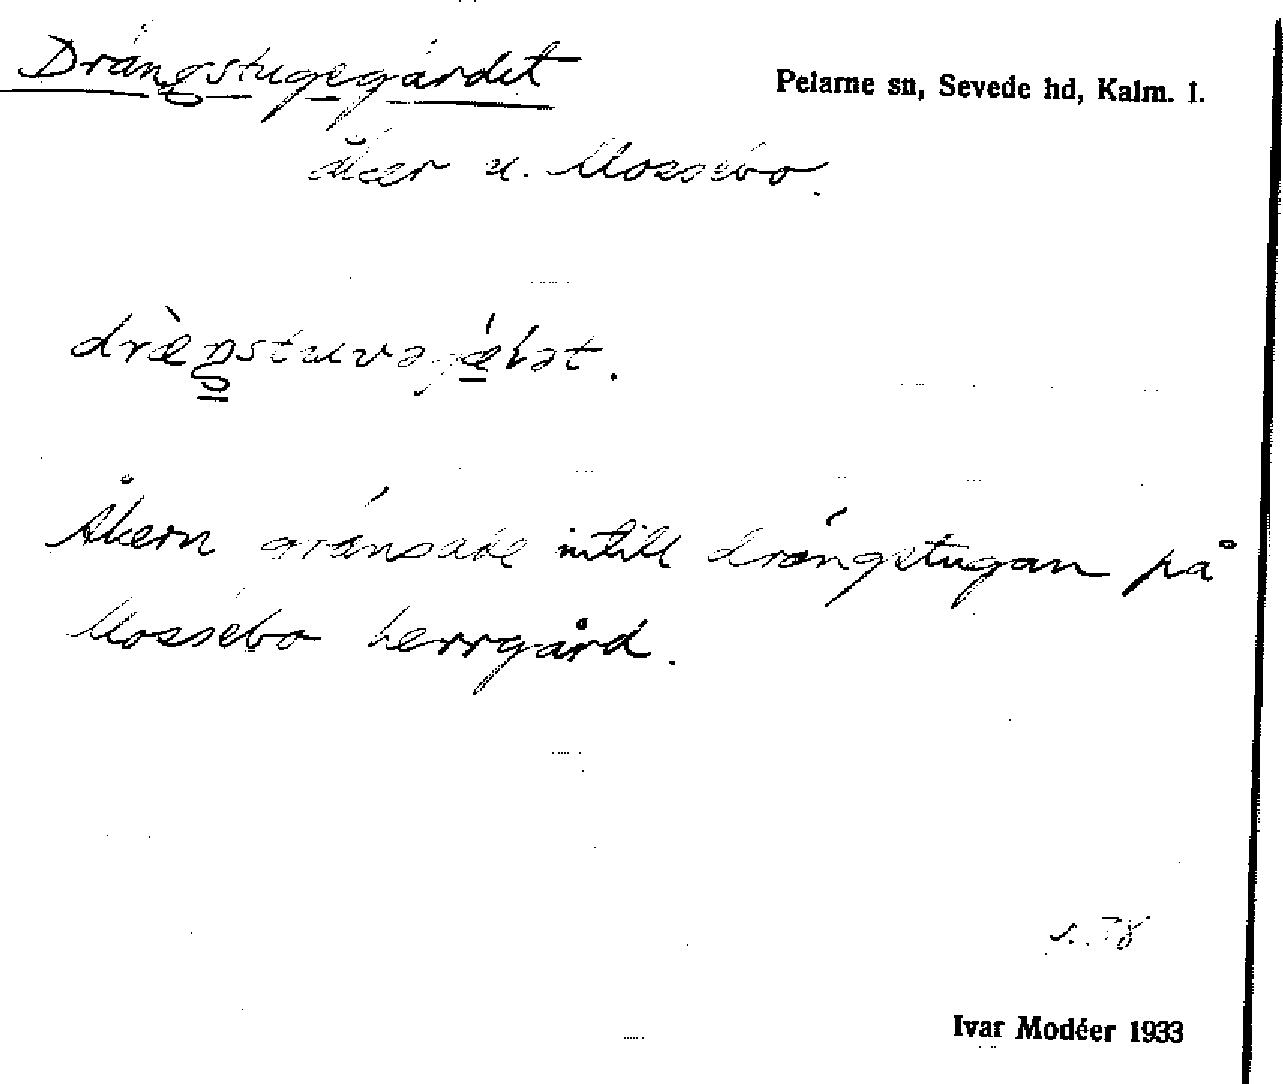 Drängstugegärdet
Pelarne sn, Sevede hd, Kalm. l.
åker u. Mossebo.
Åkern gränsade intill drängstugan på
Mossebo herrgård.
s. 78
Ivar Modéer 1933